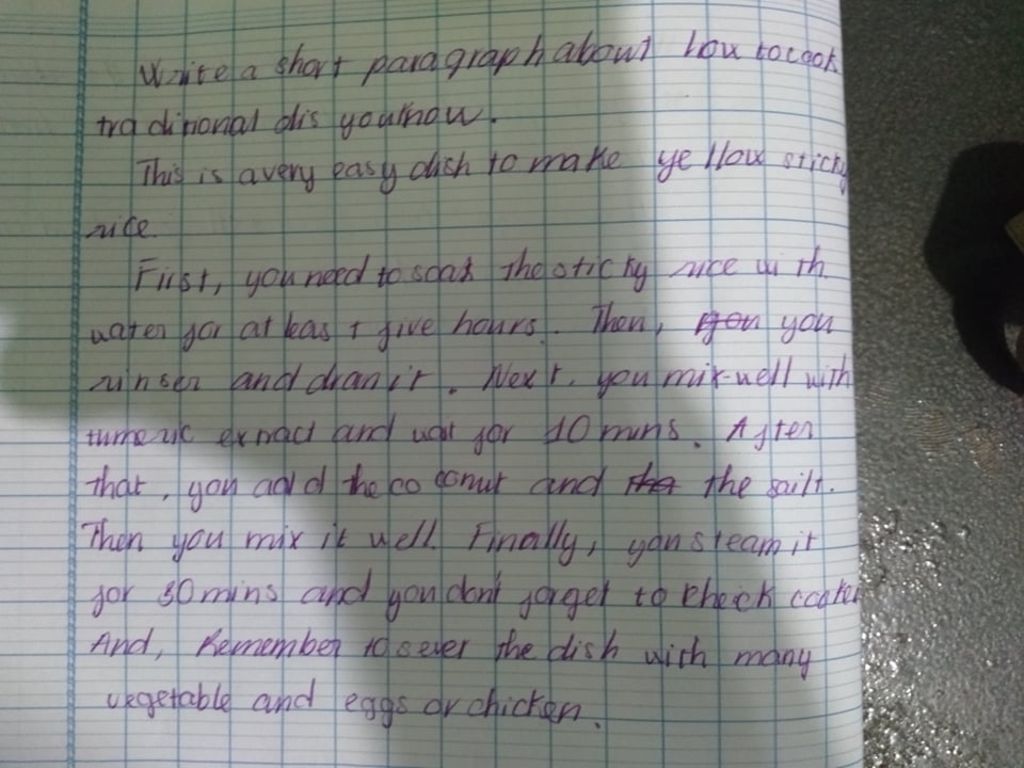 Write a short paragraph about how to cook
traditional dis you know.
This is a very easy dish to make yellow sticky
rice.
First, you need to soak the sticky rice with
water for at least five hours. Then, you you
rinser and dran it. Next, you mix well with
tumeric exract and wait for 10 mins. After
that, you add the coconut and the the sailt.
Then you mix it well. Finally, you steam it
for 30 mins and you don't forget to check cooker
And, Remember to sever the dish with many
vegetable and eggs or chicken.